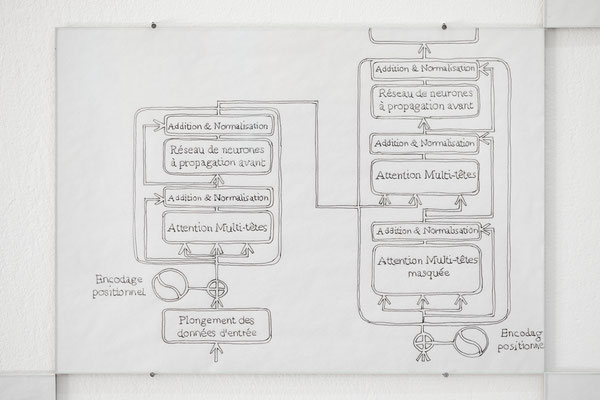 Addition & Normalisation
Réseau de neurones
à propagation avant
Addition & Normalisation
Attention Multi-têtes
Encodage
positionnel
Plongement des
données d'entrée
Addition & Normalisation
Réseau de neurones
à propagation avant
Addition & Normalisation
Attention Multi-têtes
Addition & Normalisation
Attention Multi-têtes
masquée
Encodag
positionne